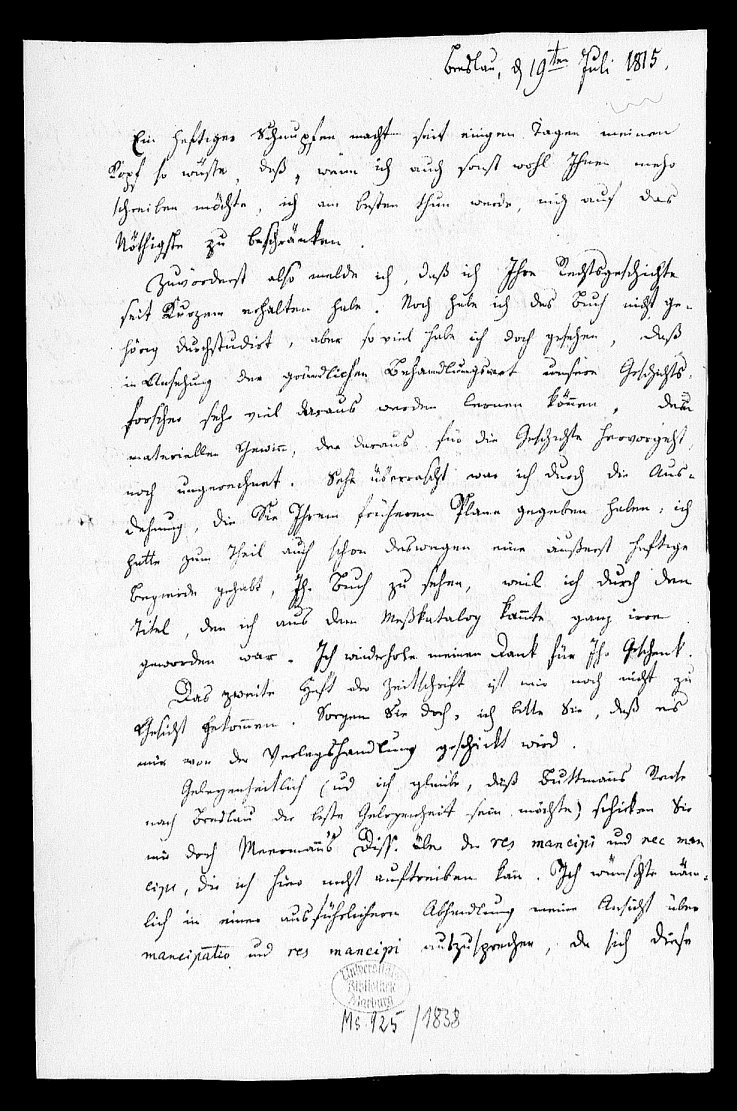 Breslau, d 19ten Juli 1815.
Ein heftiger Schnupfen macht seit einigen Tagen meinen
Kopf so wüste, daß, wenn ich auch sonst wohl Ihnen mehr
schreiben möchte, ich am besten thun werde, mich auf das
Nöthigste zu beschränken.
Zuvörderst also melde ich, daß ich Ihre Rechtsgeschichte
seit Kurzem erhalten habe. Noch habe ich das Buch nicht ge-
hörig durchstudirt, aber so viel habe ich doch gesehen, daß
in Ansehung der gründlichen Behandlungsart unsere Geschichts-
forscher sehr viel daraus werden lernen können, den
materiellen Gewinn, der daraus für die Geschichte hervorgeht,
noch ungerechnet. Sehr überrascht war ich durch die Aus-
dehnung, die Sie Ihrem früheren Plane gegeben haben; ich
hatte zum Theil auch schon deswegen eine äußerst heftige
Begierde gehabt, Ihr Buch zu sehen, weil ich durch den
Titel, den ich aus dem Meßkatalog kannte ganz irre
geworden war. Ich wiederhole meinen Dank für Ihr Geschenk.
Das zweite Heft der Zeitschrift ist mir noch nicht zu
Gesicht gekommen. Sorgen Sie doch, ich bitte Sie, daß es
mir von der Verlagshandlung geschickt wird.
Gelegenheitlich (und ich glaube, daß Buttmanns Reise
nach Breslau die beste Gelegenheit sein möchte) schicken Sie
mir doch Meermann's Diss. über die res mancipi und nec man
cipi, die ich hier nicht auftreiben kann. Ich wünschte näm-
lich in einer ausführlichern Abhandlung meine Ansicht über
mancipatio und res mancipi auszusprechen, da sich diese
Universitäts
Bibliothek
Marburg
Ms 925/1838